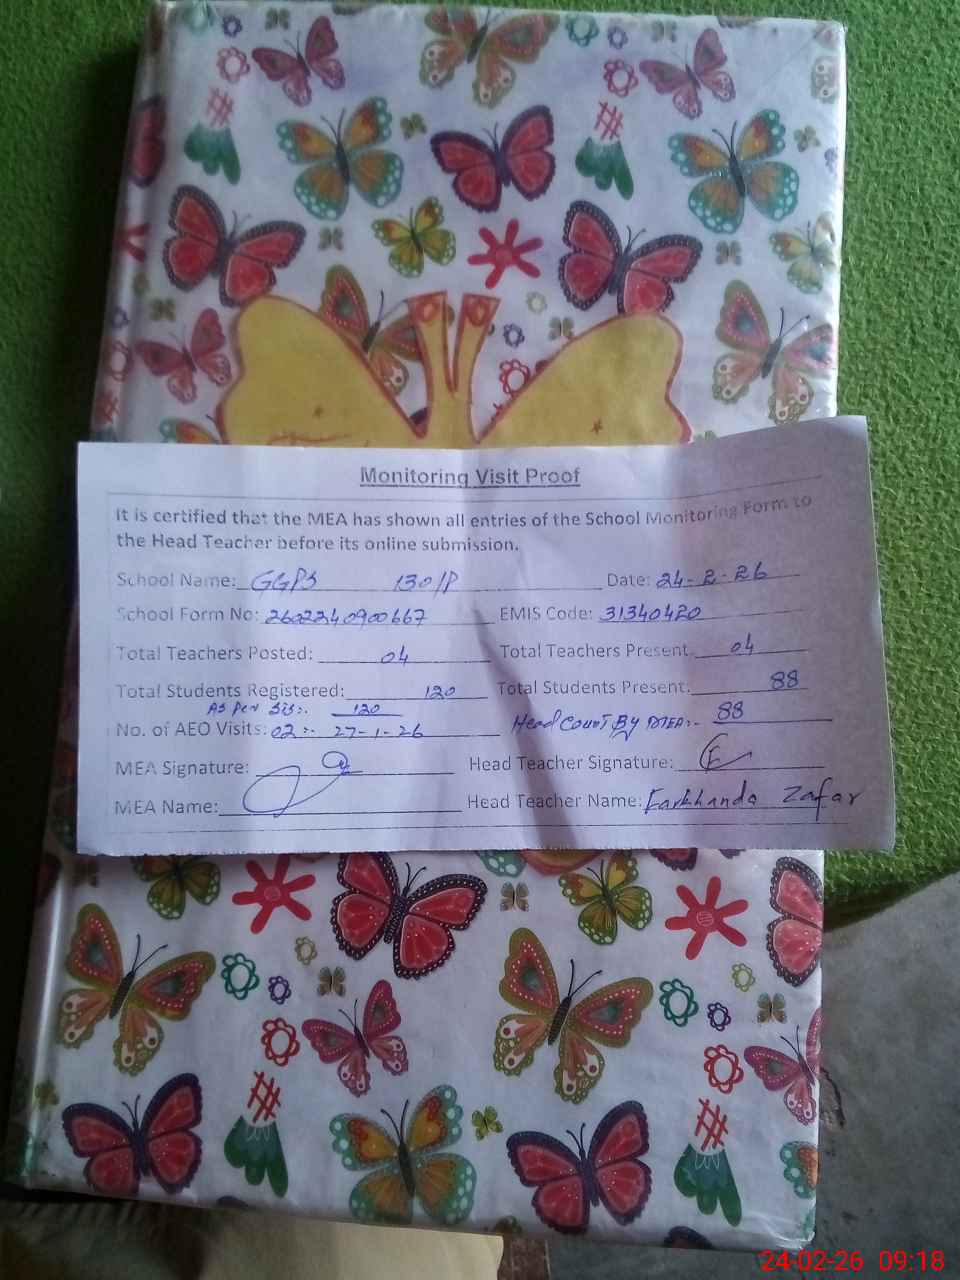 Monitoring Visit Proof
It is certified that the MEA has shown all entries of the School Monitoring Form to
the Head Teacher before its online submission.
School Name: GGPS 130/P Date: 24-2-26
School Form No: 2602240900667 EMIS Code: 31340420
Total Teachers Posted: 04 Total Teachers Present: 04
Total Students Registered: 120 Total Students Present: 88
As Per SIS:- 120
No. of AEO Visits: 02 :- 27-1-26 Head Count By MEA:- 88
MEA Signature: Head Teacher Signature:
MEA Name: Head Teacher Name: Farkhanda Zafar
24-02-26 09:18